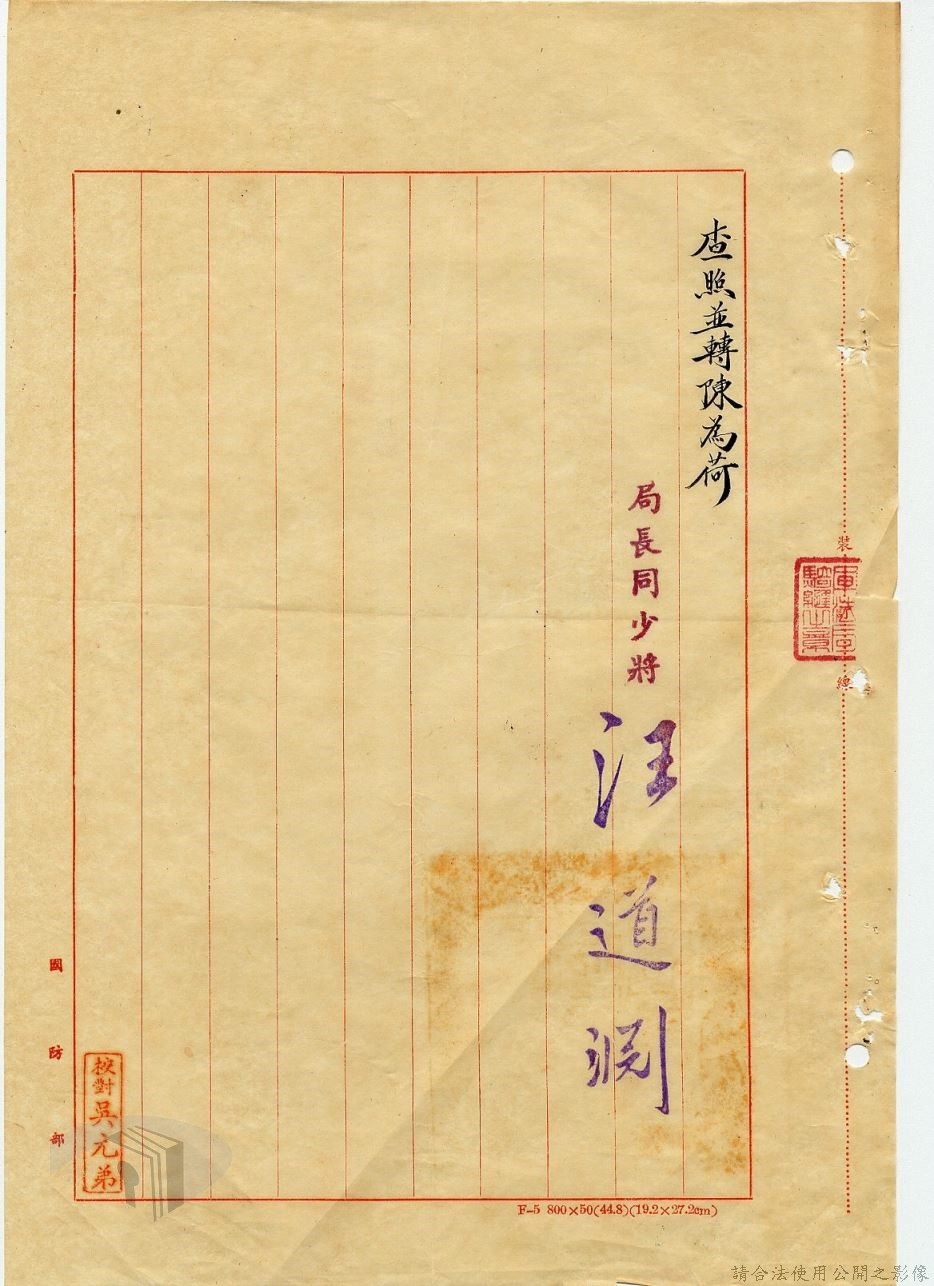 查照並轉陳為荷
局長同少將
汪道淵
裝
線
國防部
校對吳元弟
F—5 800×50(44.8)(19.2×27.2cm)
請合法使用公開之影像